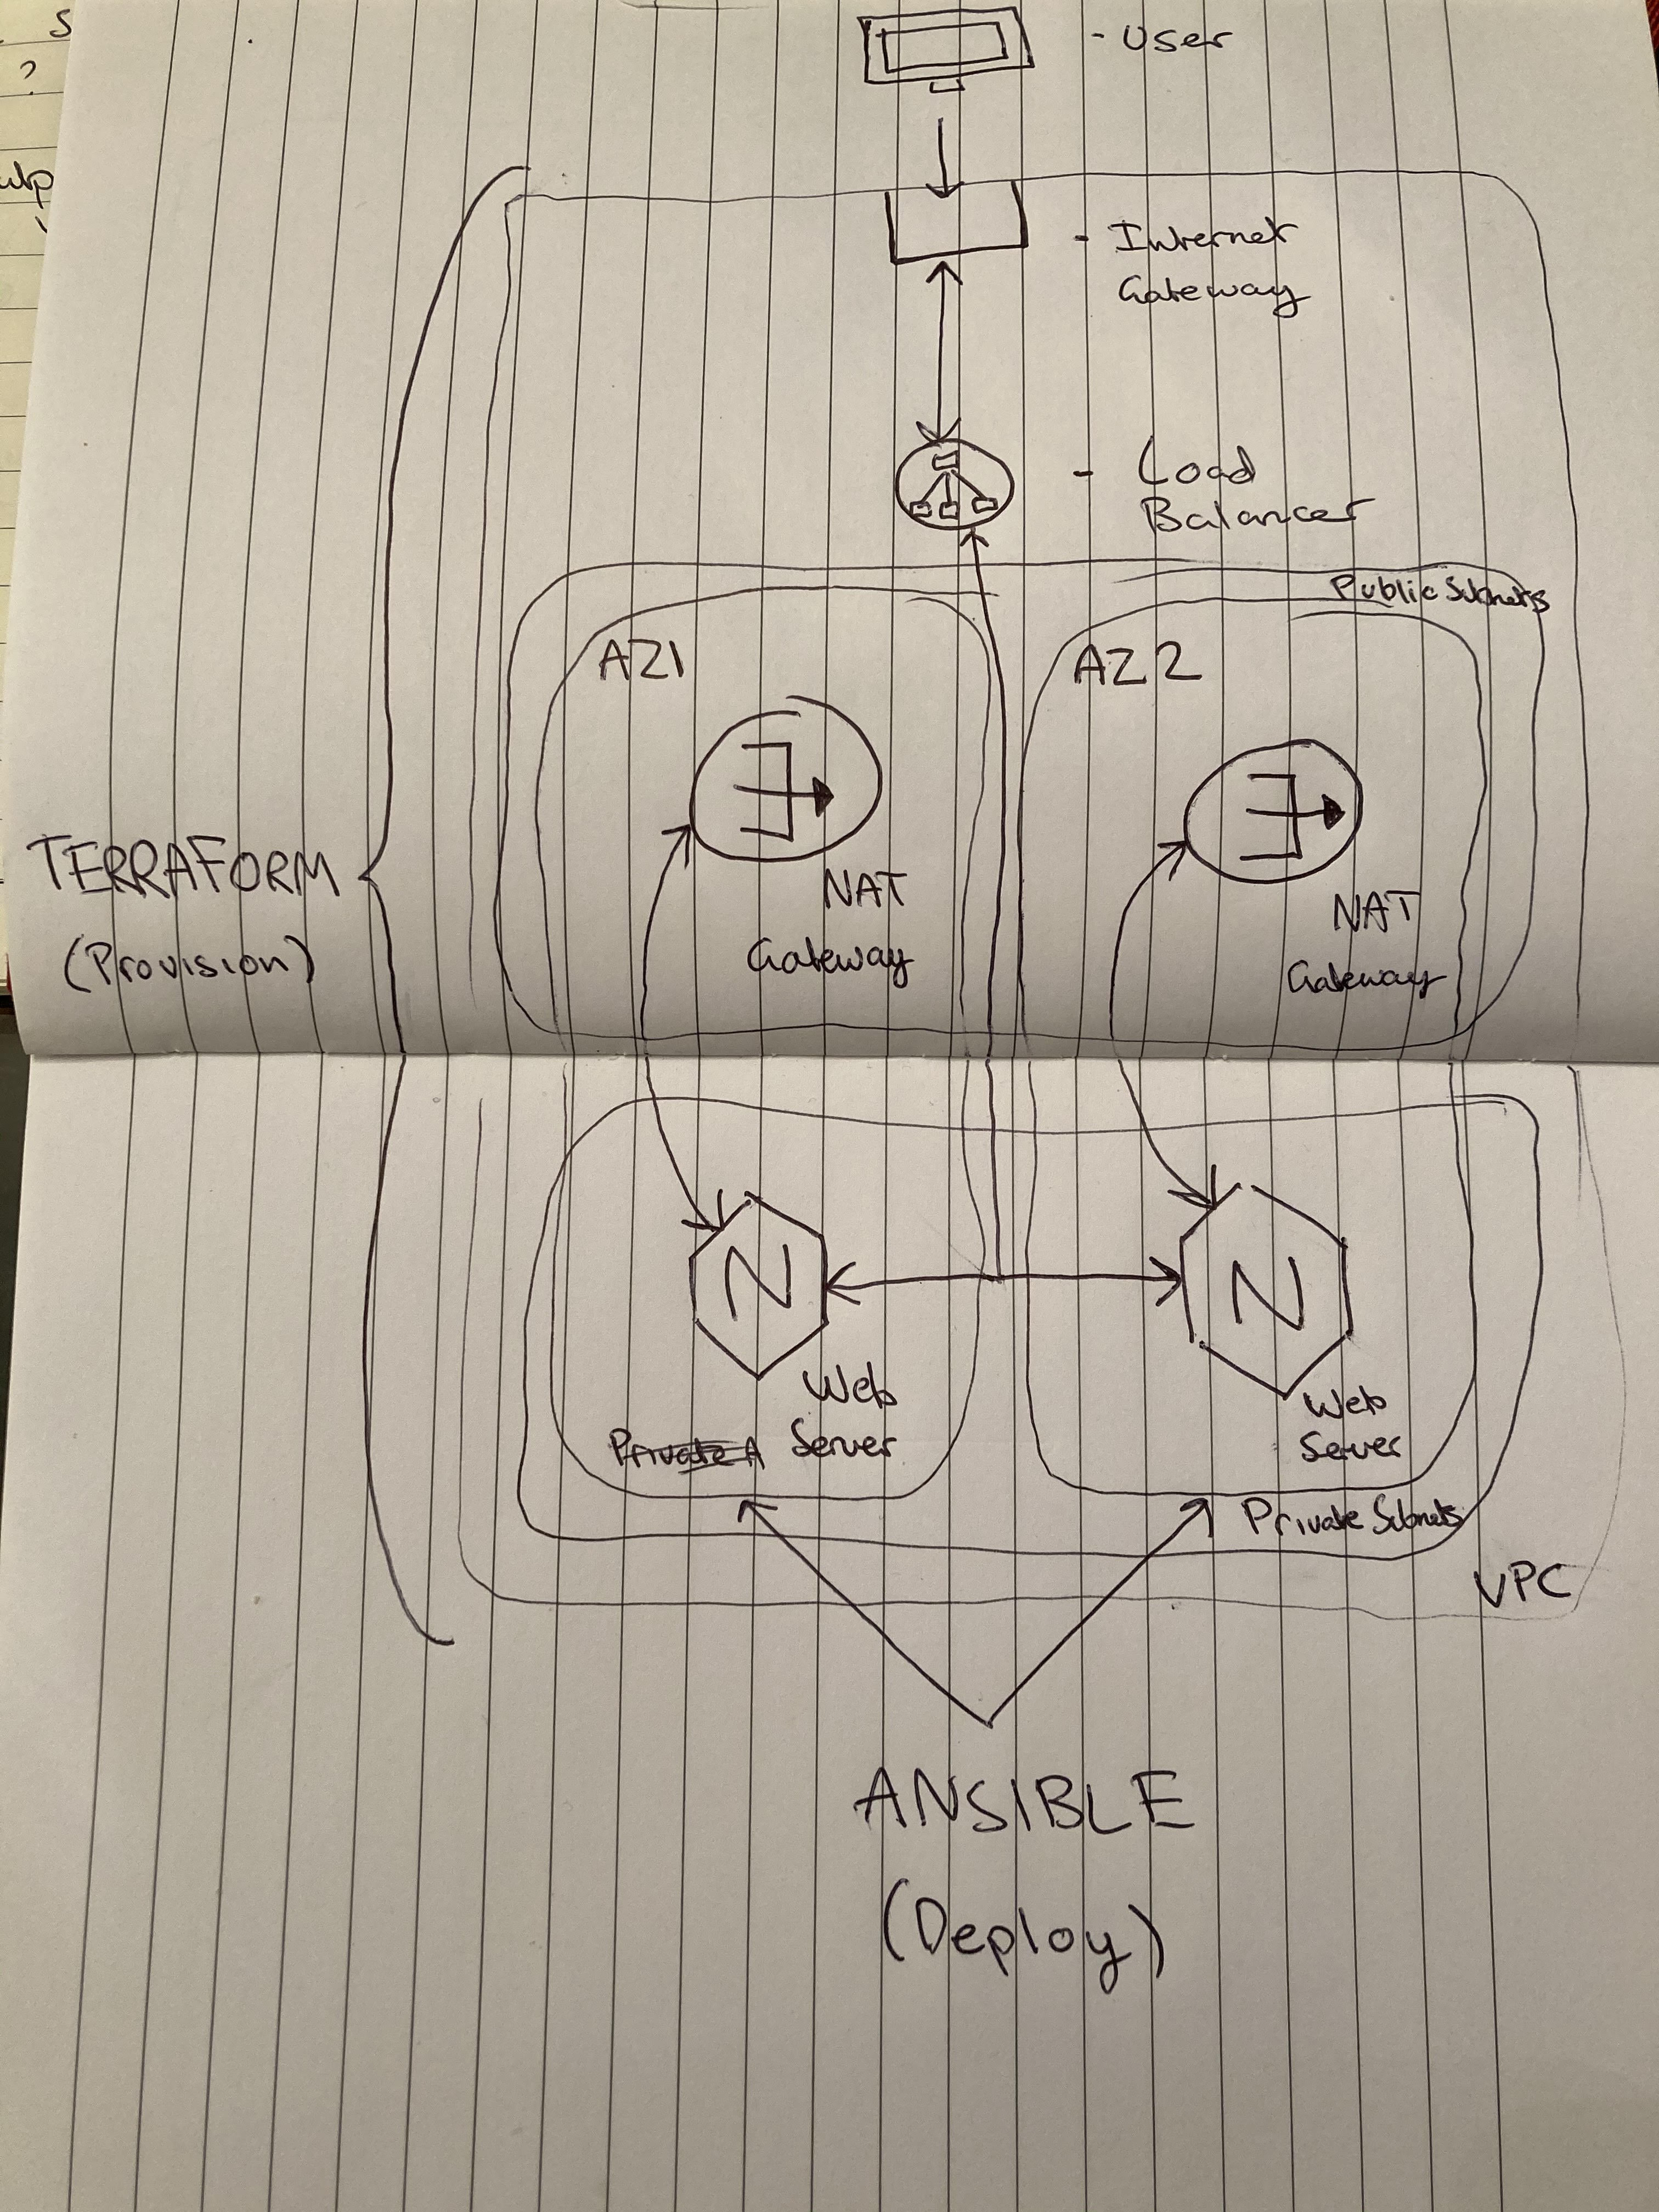 - User
- Internet
Gateway
- Load
Balancer
Public Subnets
AZ1
AZ2
NAT
Gateway
NAT
Gateway
TERRAFORM
(Provision)
N
N
Web
Server
Web
Server
Private A
Private Subnets
VPC
ANSIBLE
(Deploy)
S
?